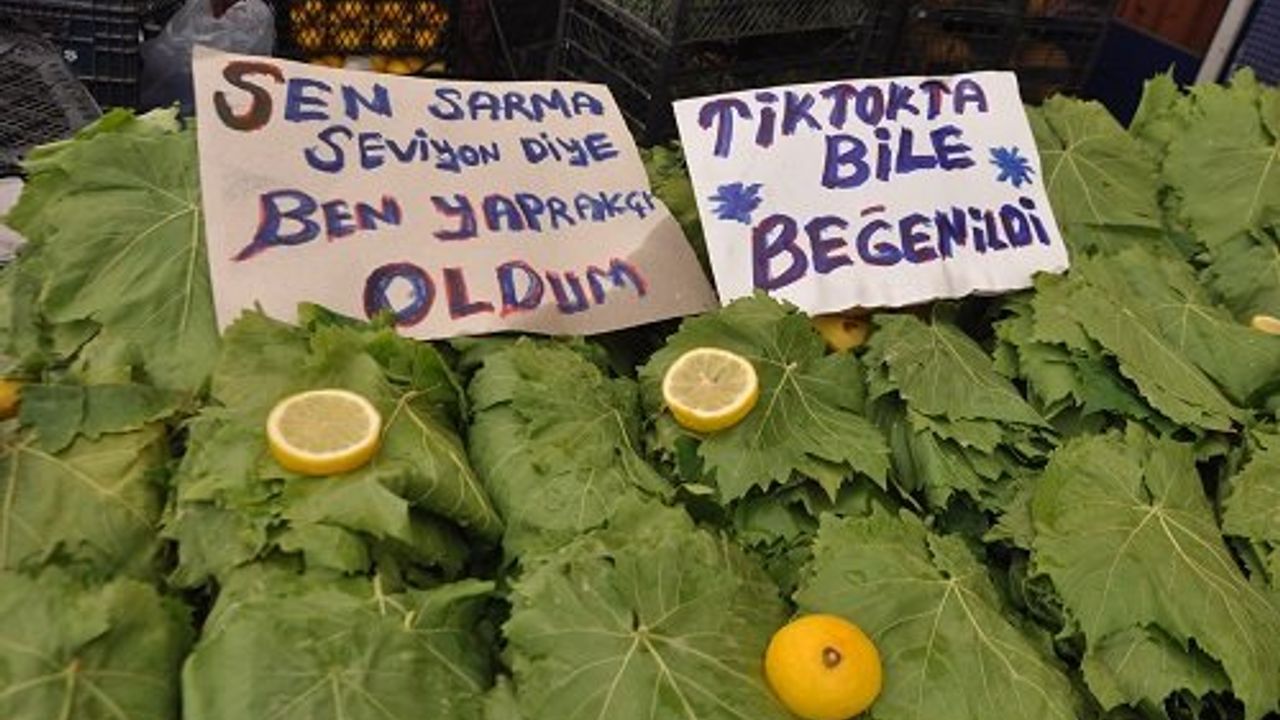 SEN SARMA
SEViYON DiYE
BEN YAPRAKÇI
OLDUM
TiKTOKTA
BiLE
BEĞENiLDi